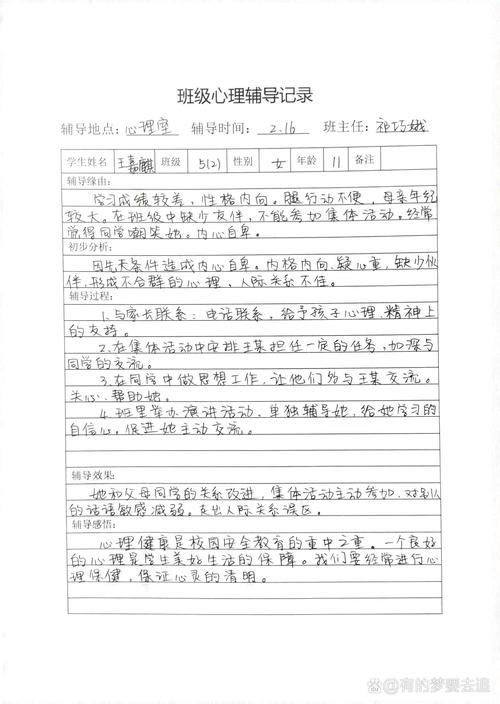 班级心理辅导记录
辅导地点：心理室 辅导时间： 2.16 班主任：祁巧娥
学生姓名 王嘉麒 班级 5(2) 性别 女 年龄 11 备注
辅导缘由：
学习成绩较差，性格内向。腿行动不便，母亲年纪
较大。在班级中缺少友伴，不能参加集体活动。经常
觉得同学嘲笑她。内心自卑。
初步分析：
因先天条件造成内心自卑。内格内向、疑心重，缺少伙
伴，形成不合群的心理，人际关系不佳。
辅导过程：
1.与家长联系：电话联系，给予孩子心理、精神上
的支持。
2.在集体活动中安排王某担任一定的任务，加深与
同学的交流。
3.在同学中做思想工作，让他们多与王某交流。
关心、帮助她。
4.班里举办演讲活动、单独辅导她，给她学习的
自信心，促进她主动交流。
辅导效果：
她和父母同学的关系改进，集体活动主动参加，对别人
的话语敏感减弱。走出人际关系误区。
辅导感悟：
心理健康是校园安全教育的重中之重。一个良好
的心理是学生美好生活的保障。我们要经常进行心
理保健，保证心灵的清明。
@有的梦要去追